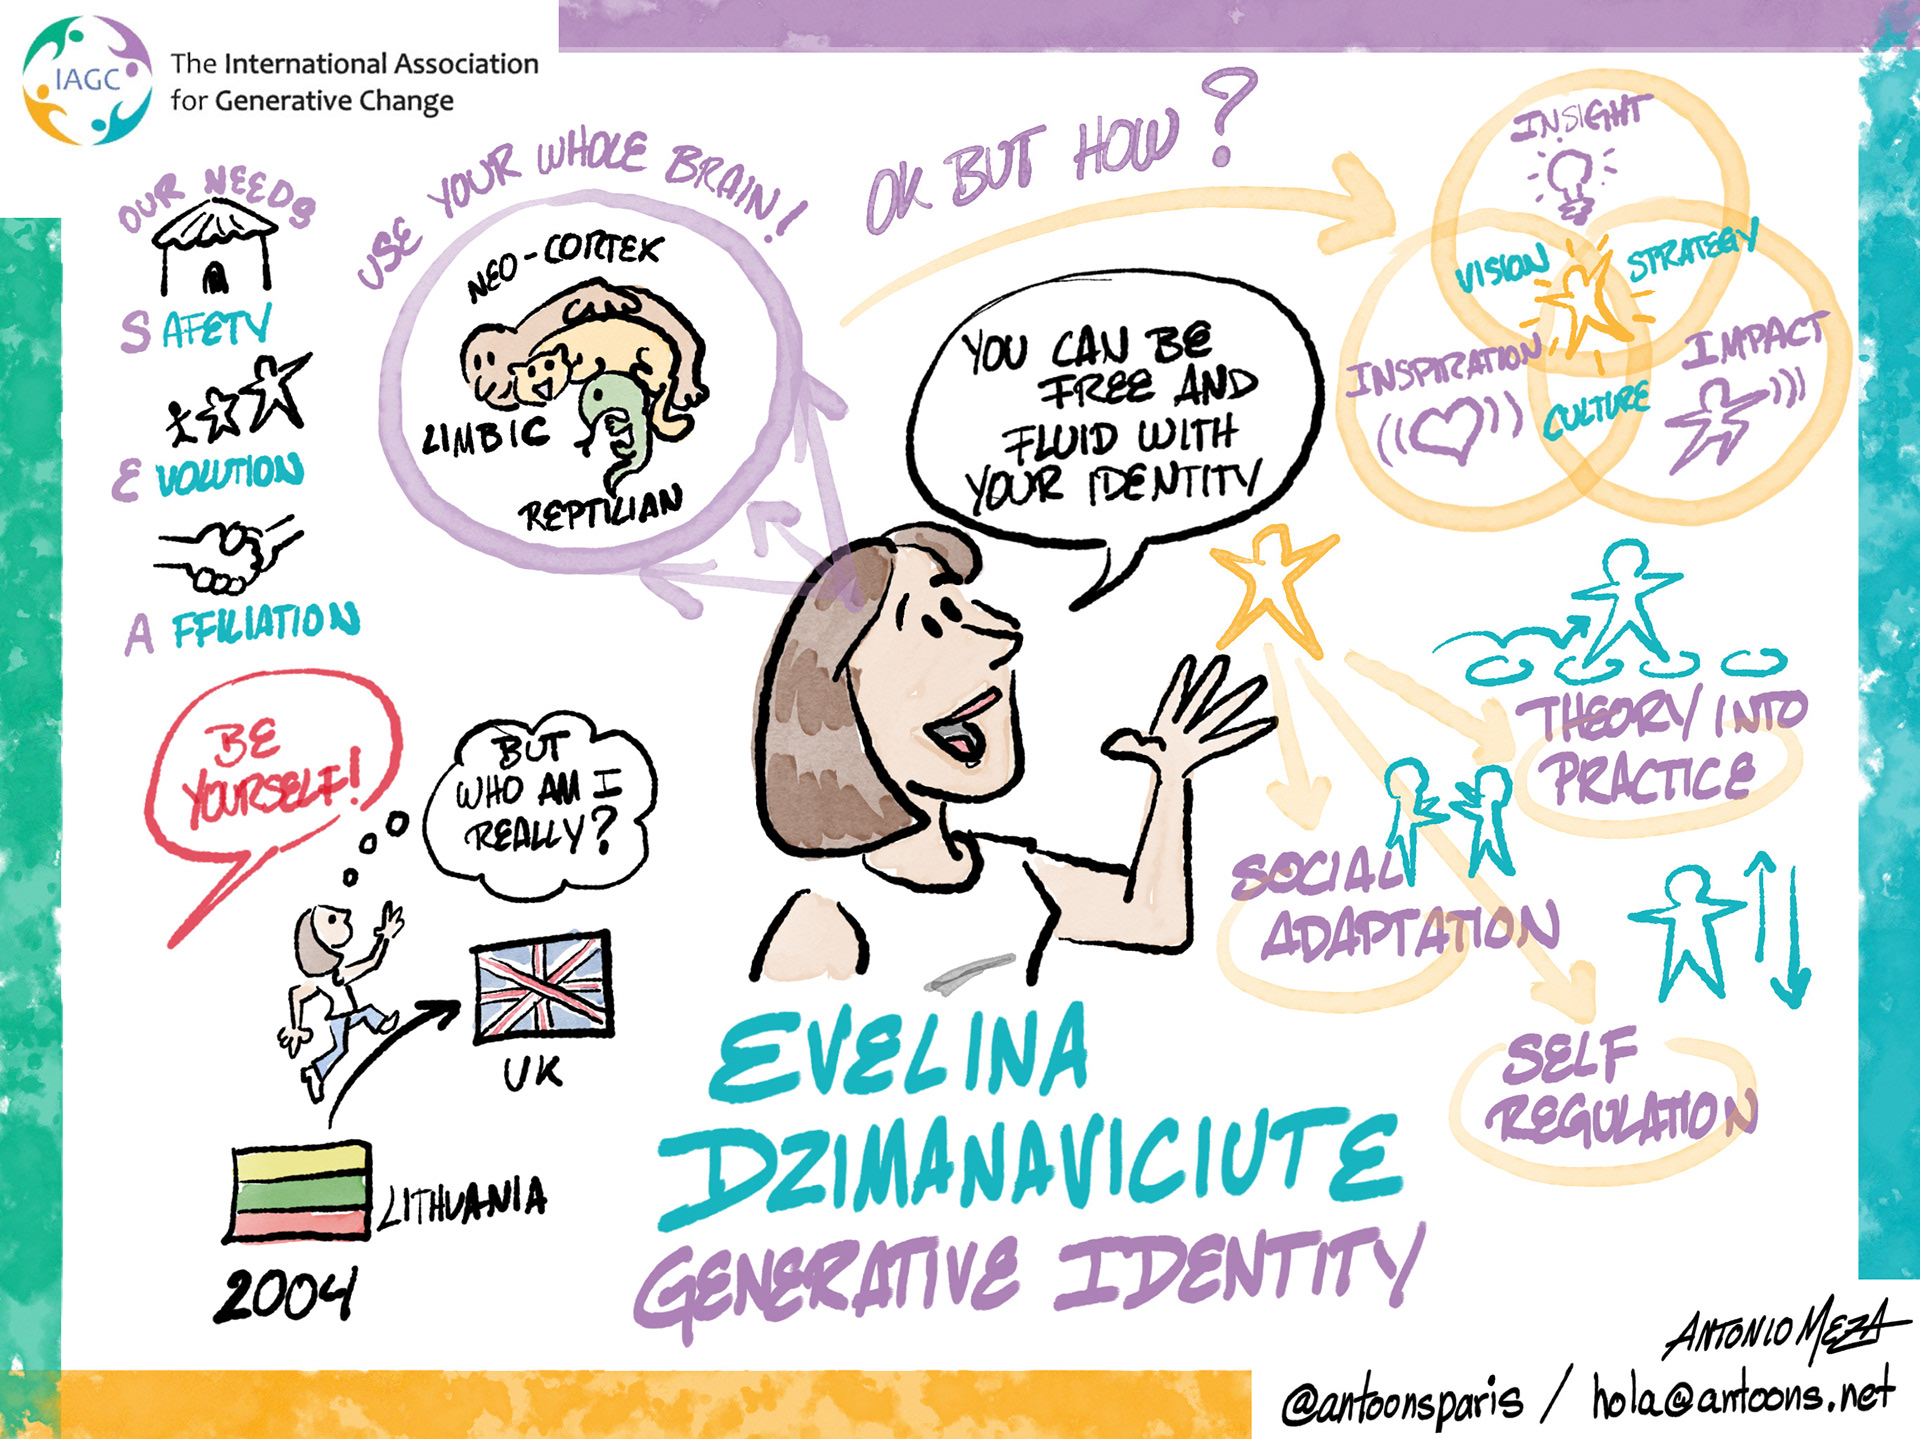 IAGC
The International Association
for Generative Change
OUR NEEDS
SAFETY
EVOLUTION
AFFILIATION
USE YOUR WHOLE BRAIN!
NEO-CORTEX
LIMBIC
REPTILIAN
OK BUT HOW?
INSIGHT
VISION
STRATEGY
INSPIRATION
IMPACT
CULTURE
YOU CAN BE
FREE AND
FLUID WITH
YOUR IDENTITY
THEORY INTO
PRACTICE
SOCIAL
ADAPTATION
SELF
REGULATION
BE
YOURSELF!
BUT
WHO AM I
REALLY?
UK
LITHUANIA
2004
EVELINA
DZIMANAVICIUTE
GENERATIVE IDENTITY
ANTONIO MEZA
@antoonsparis / hola@antoons.net